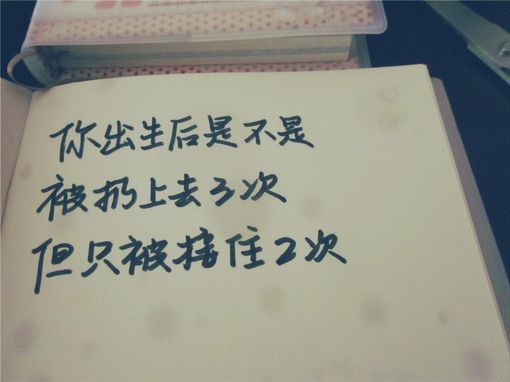 你出生后是不是
被扔上去3次
但只被接住2次